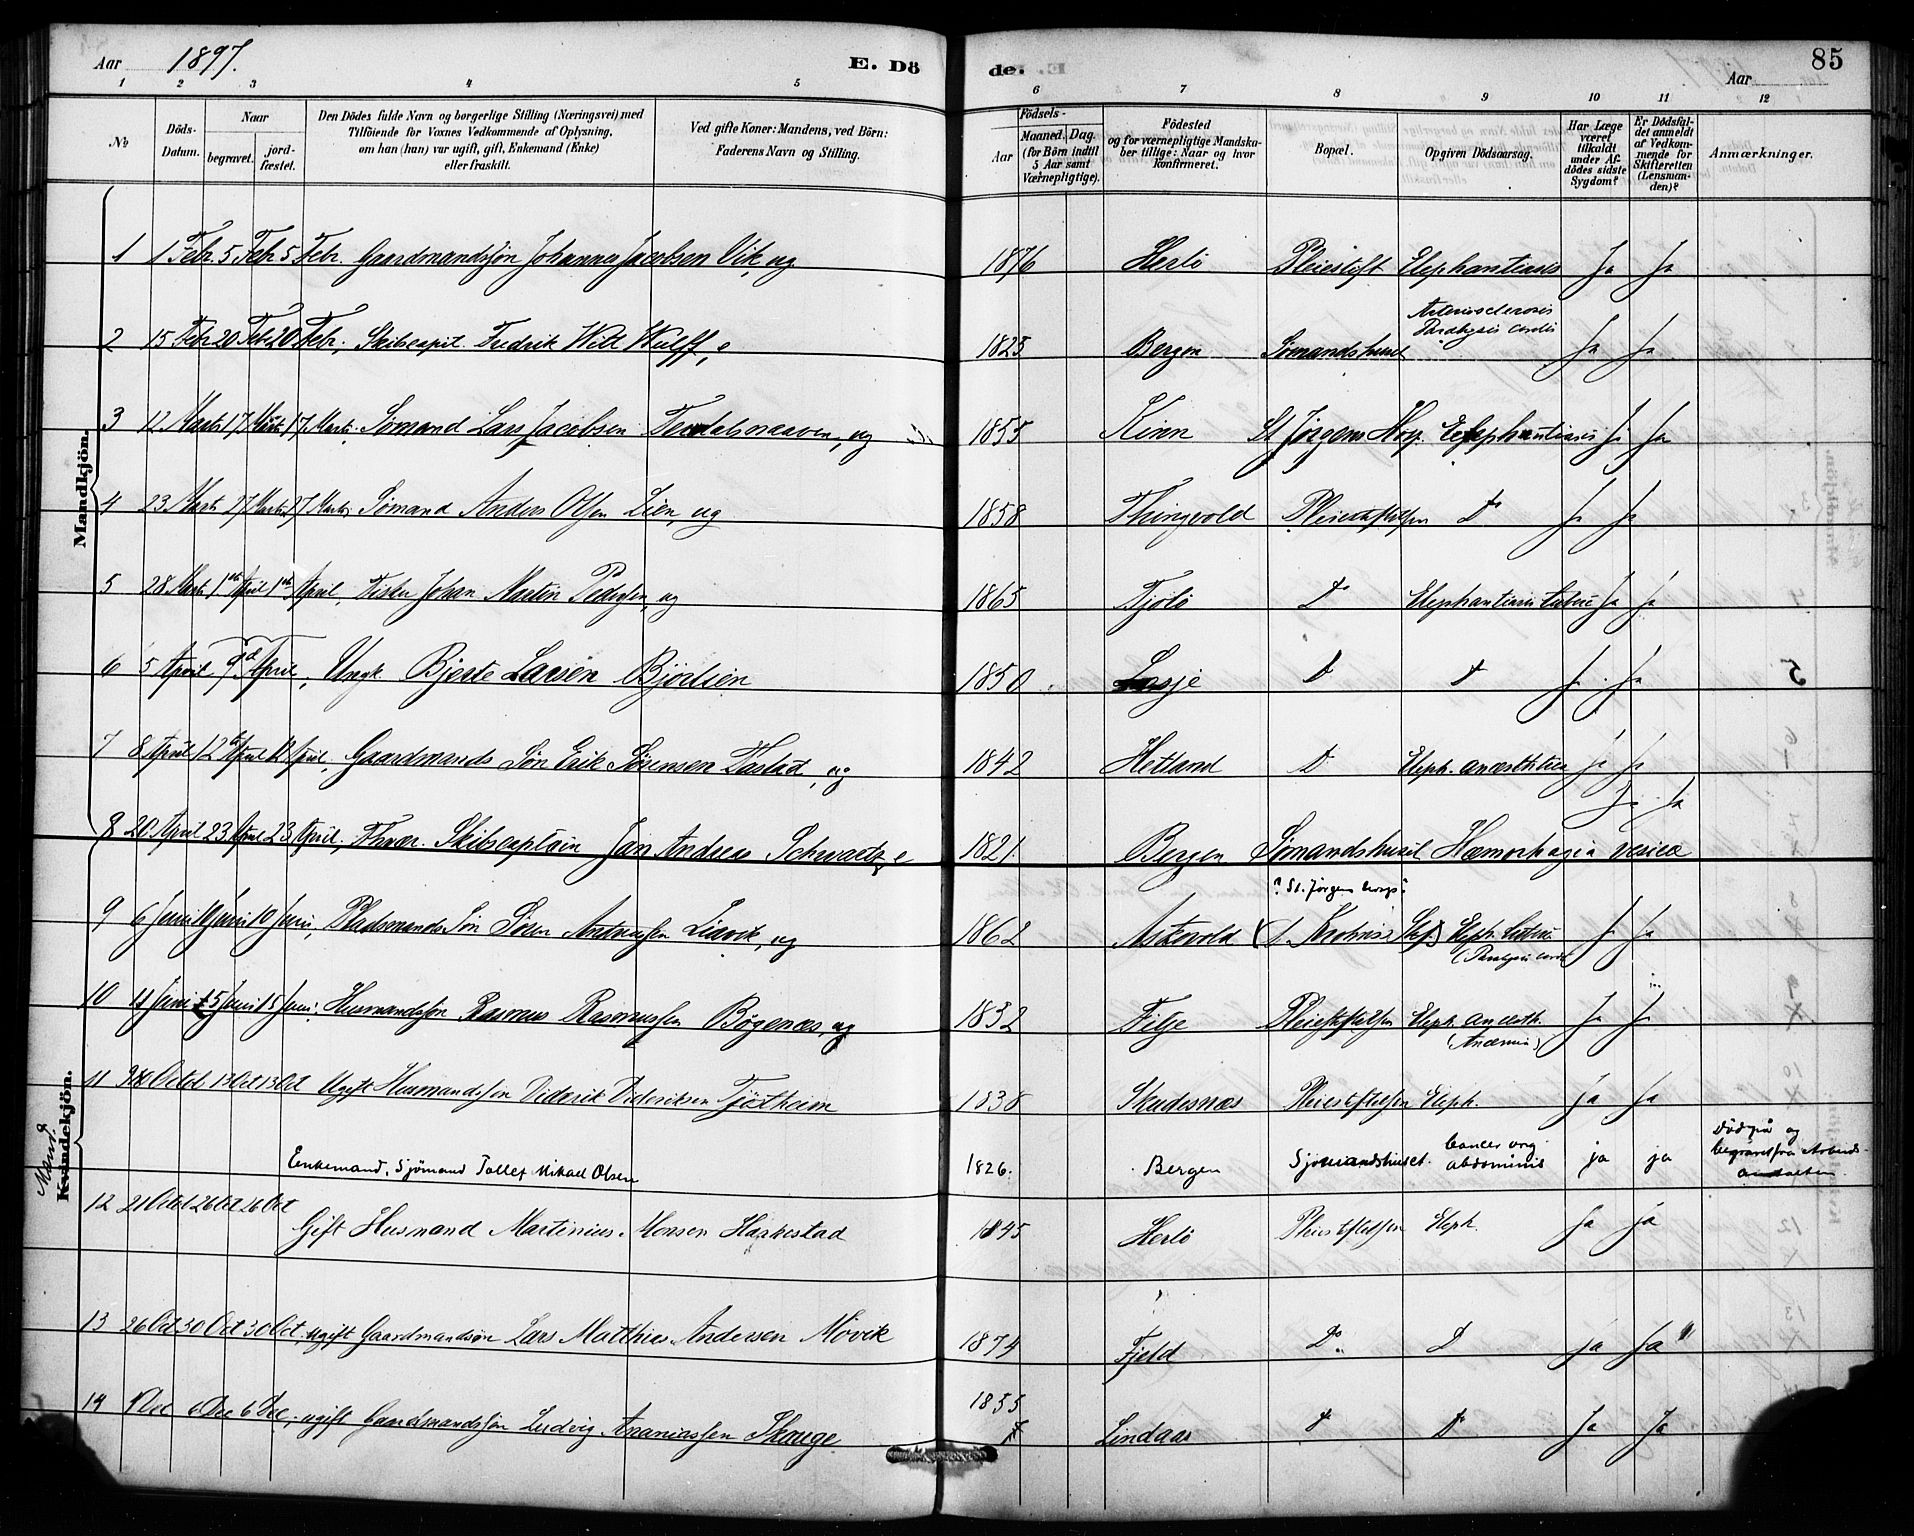 Aar 1897.
E. Dö
de.
Aar
85
1 2 3 4 5 6 7 8 9 10 11 12
№
Döds-Datum.
Naar
begravet.
jord-fæstet.
Den Dödes fulde Navn og borgerlige Stilling (Næringsvei) med
Tilföiende for Voxnes Vedkommende af Oplysning,
om han (hun) var ugift, gift, Enkemand (Enke)
eller fraskilt.
Ved gifte Koner: Mandens, ved Börn:
Faderens Navn og Stilling.
Födsels-
Aar
Maaned. Dag.
(for Börn indtil
5 Aar samt
Værnepligtige).
Födested
og for værnepligtige Mandska-
ber tillige: Naar og hvor
konfirmeret.
Bopæl.
Opgiven Dödsaarsag.
Har Læge
været
tilkaldt
under Af-
dödes sidste
Sygdom?
Er Dödsfal-
det anmeldt
af Vedkom-
mende for
Skifteretten
(Lensman-
den)?
Anmærkninger.
Mandkjön.
1 1 Febr. 5 Febr 5 Febr. Gaardmandssøn Johannes Jacobsen Vik, ug 1876 Herlö Pleiestift Elephantiasis Ja Ja
Arteriosclerosis
Paralysis cordis
2 15 Febr 20 Febr 20 Febr. Skibscapit. Fredrik Will Wulff, e 1825 Bergen Sømandshuset Ja Ja
3 12 Marts 17 Marts 17 Marts. Sømand Lars Jacobsen ug 1855 Kinn St Jørgens Hosp. Elephantiasis Ja Ja
4 23 Marts 27 Marts 27 Marts Sømand Anders Olsen Lien, ug 1858 Thingvold Pleiestiftelsen Do Ja Ja
5 28 Marts 1ste April 1ste April, Fisker Johan Martin Pedersen, ug 1865 Do Elephantiasis tuberc Ja Ja
6 5 April 9d April, Ungk Bjerte Larsen Bjørlien 1850 Lesje Do Do Ja Ja
7 8 April 12te April 12 April, Gaardmands Søn Erik Sørensen Tastad, ug 1842 Hetland Do Eleph. anæsthetica Ja Ja
Ja Ja
8 20 April 23 April 23 April, Skibscaptain Jan Andreas Schwartz, e 1821. Bergen Sømandshuset Hæmorhagia vesicæ
? St. Jørgens hosp?
9 6 Juni 10 Juni 10 Juni, Pladsmands Søn Søren Liavik, ug 1862 Askevold Eleph. tuberc Ja Ja
(Paralysis cordis
10 11 Juni 15 Juni 15 Juni, Husmandssøn Rasmus Rasmussen Bøgenæs, ug 1832 Pleiestiftelsen Eleph. anæsth. Ja Ja
(Anæmia)
Mand.
Kvindekjön.
11 9 Octol 13 Oct 13 Oct Ugift Husmandssøn Diderik Dideriksen Tjöstheim 1838 Skudesnæs Pleiestiftelsen Eleph. Ja Ja
Enkemand, Sjömand Tollef Mikael Olsen 1826. Bergen Sjömandshuset. Cancer org. abdominis ja ja Död på og begravet fra Arbeids-anstalten
12 21 Octol 26 Oct 26 Oct Gift Husmand Martinius Monsen Haakestad 1845 Herlö Pleiestiftelsen Eleph. Ja Ja
13 26 Oct 30 Oct 30 Oct, ugift Gaardmandsøn Lars Matthias Andersen Møvik 1874 Fjeld Do. Do Ja Ja
14 1 Dec 6 Dec 6 Dec, ugift Gaardmandssøn Ludvig Ananiassen Skauge 1835 Lindaas Do Do Ja Ja